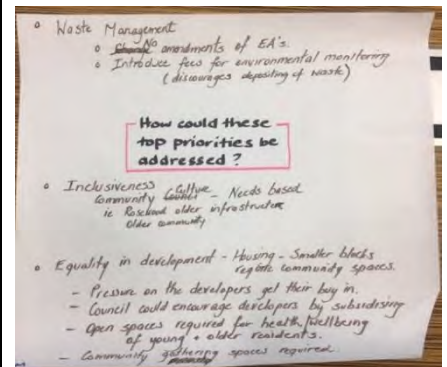 o Waste Management
o Change No amendments of EA's.
o Introduce fees for environmental monitoring
(discourages depositing of waste)
How could these
top priorities be
addressed?
o Inclusiveness
Community Council Culture - Needs based
ie Rosewood older infrastructure
Older community
o Equality in development - Housing - Smaller blocks
require community spaces.
- Pressure on the developers get their buy in.
- Council could encourage developers by subsidising
- Open spaces required for health/wellbeing
of young + older residents.
- Community gathering spaces required.